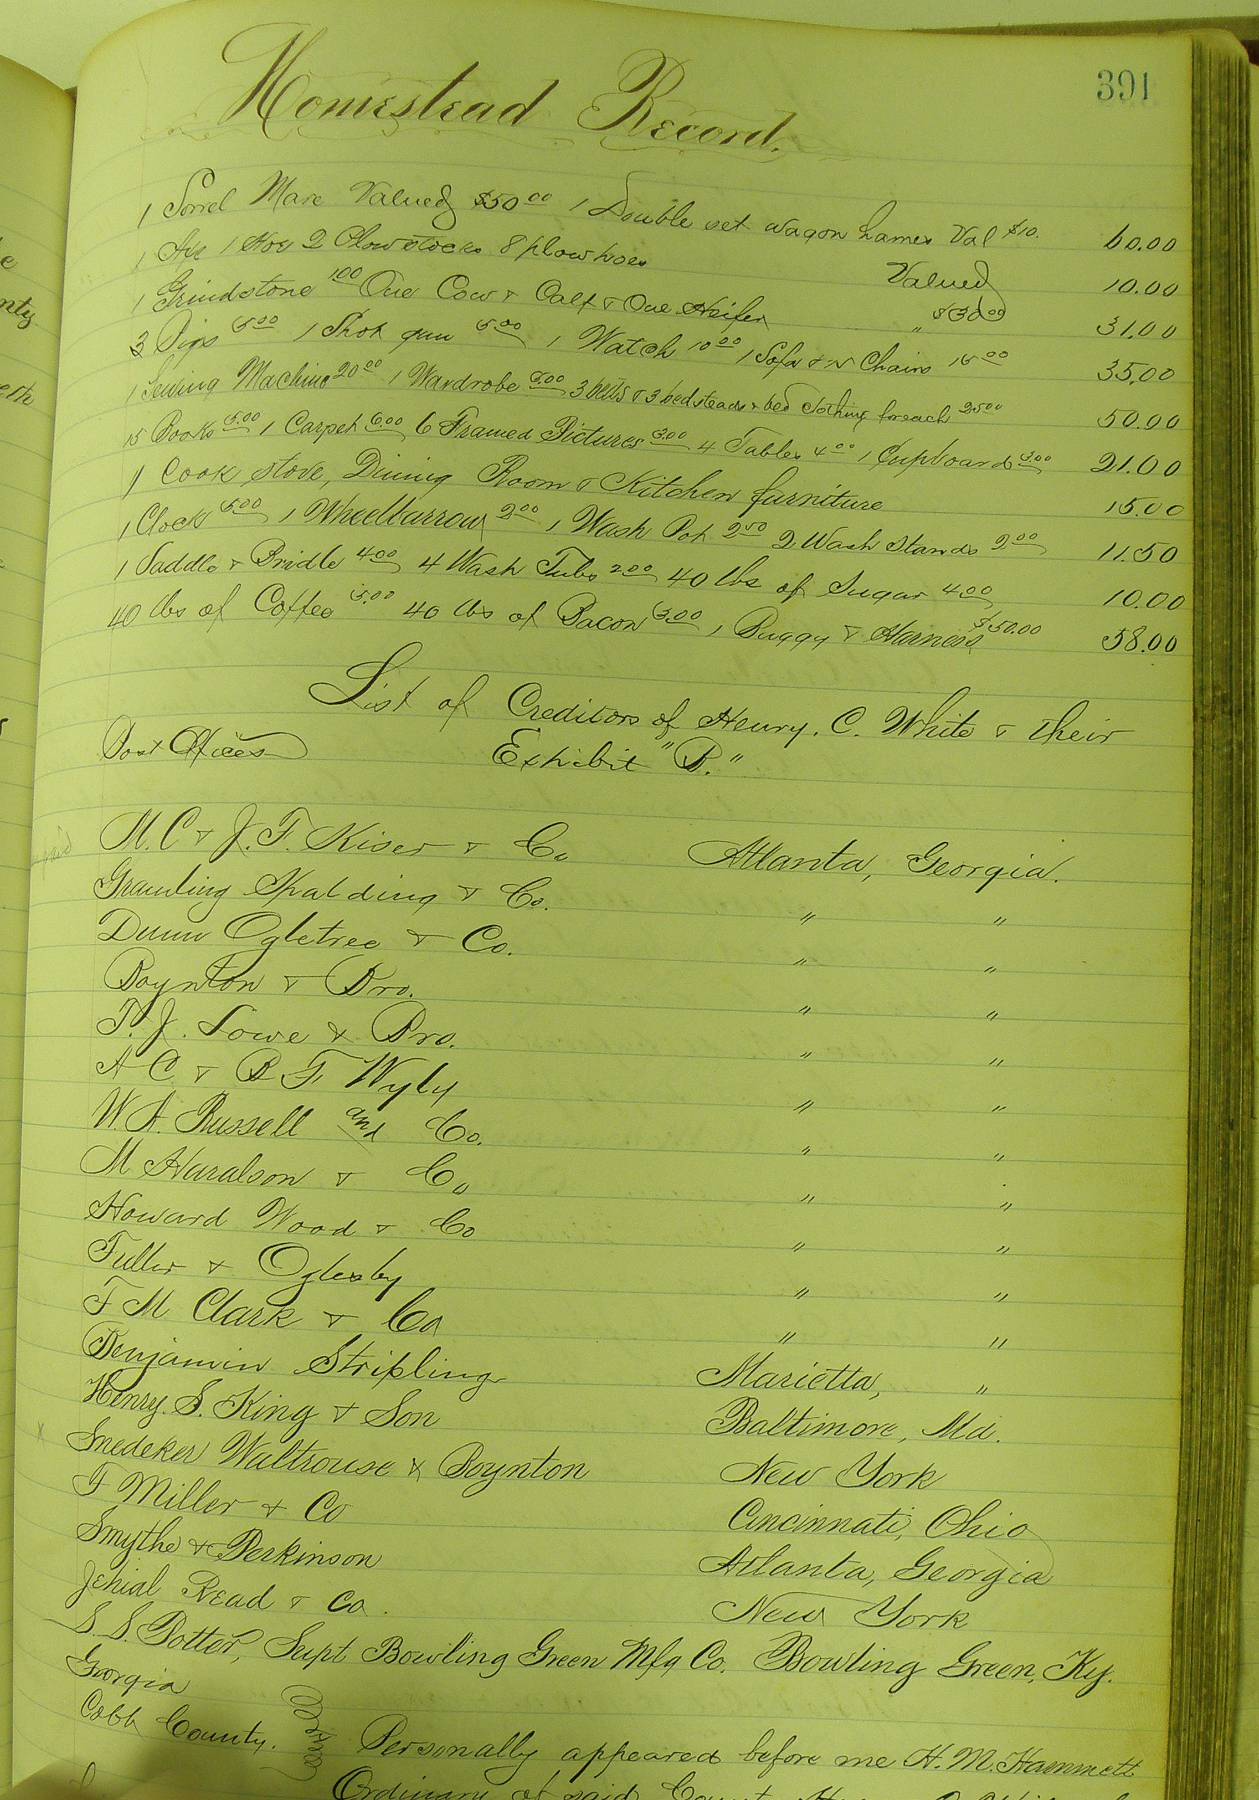 391
Homestead Record.
1 Sorrel Mare Valued $50 00 1 Double set wagon hames Val $10. 60.00
1 Axe 1 Hoe 2 Plowstocks 8 plow hoes Valued 10.00
1 Grindstone 1 00 One Cow & Calf & One Heifer " $30 00 31.00
3 Pigs 5.00 1 Shot gun 5.00 1 Watch 10 00 1 Sofa & Chairs 15 00 35.00
1 Sewing Machine 20 00 1 Wardrobe 5.00 3 beds & 3 bedsteads & bed clothing foreach 25 00 50.00
15 Books 5.00 1 Carpet 6.00 6 Framed Pictures 3.00 4 Tables 4 00 1 Cupboard 3.00 21.00
1 Cook stove, Dining Room & Kitchen furniture 15.00
1 Clock 5.00 1 Wheelbarrow 2 00 1 Wash Pot 2 50 2 Wash Stands 2 00 11.50
1 Saddle & Bridle 4.00 4 Wash Tubs 2.00 40 lbs of Sugar 4.00 10.00
40 lbs of Coffee 5.00 40 lbs of Bacon 3.00 1 Buggy & Harness $50.00 58.00
List of Creditors of Henry. C. White & their
Post Offices Exhibit "B."
M. C & J. F. Kiser & Co Atlanta, Georgia.
Gramling Spalding & Co. " "
Dunn Ogletree & Co. " "
Boynton & Bro. " "
T. J. Lowe & Bro. " "
A C & B F Wyly " "
W. A. Russell and Co. " "
M Haralson & Co " "
Howard Wood & Co " "
Fuller & Oglesby " "
T M Clark & Co " "
Benjamin Stripling Marietta, "
Henry. S. King & Son Baltimore, Md.
x Snedeker Waltrouse & Boynton New York
F Miller & Co Cincinnati, Ohio
Smythe & Perkinson Atlanta, Georgia
Jehial Read & Co. New York
S. S. Potter, Supt Bowling Green Mfg Co. Bowling Green, Ky.
Georgia
Cobb County. Personally appeared before me H. M. Hammett
Ordinary of said County